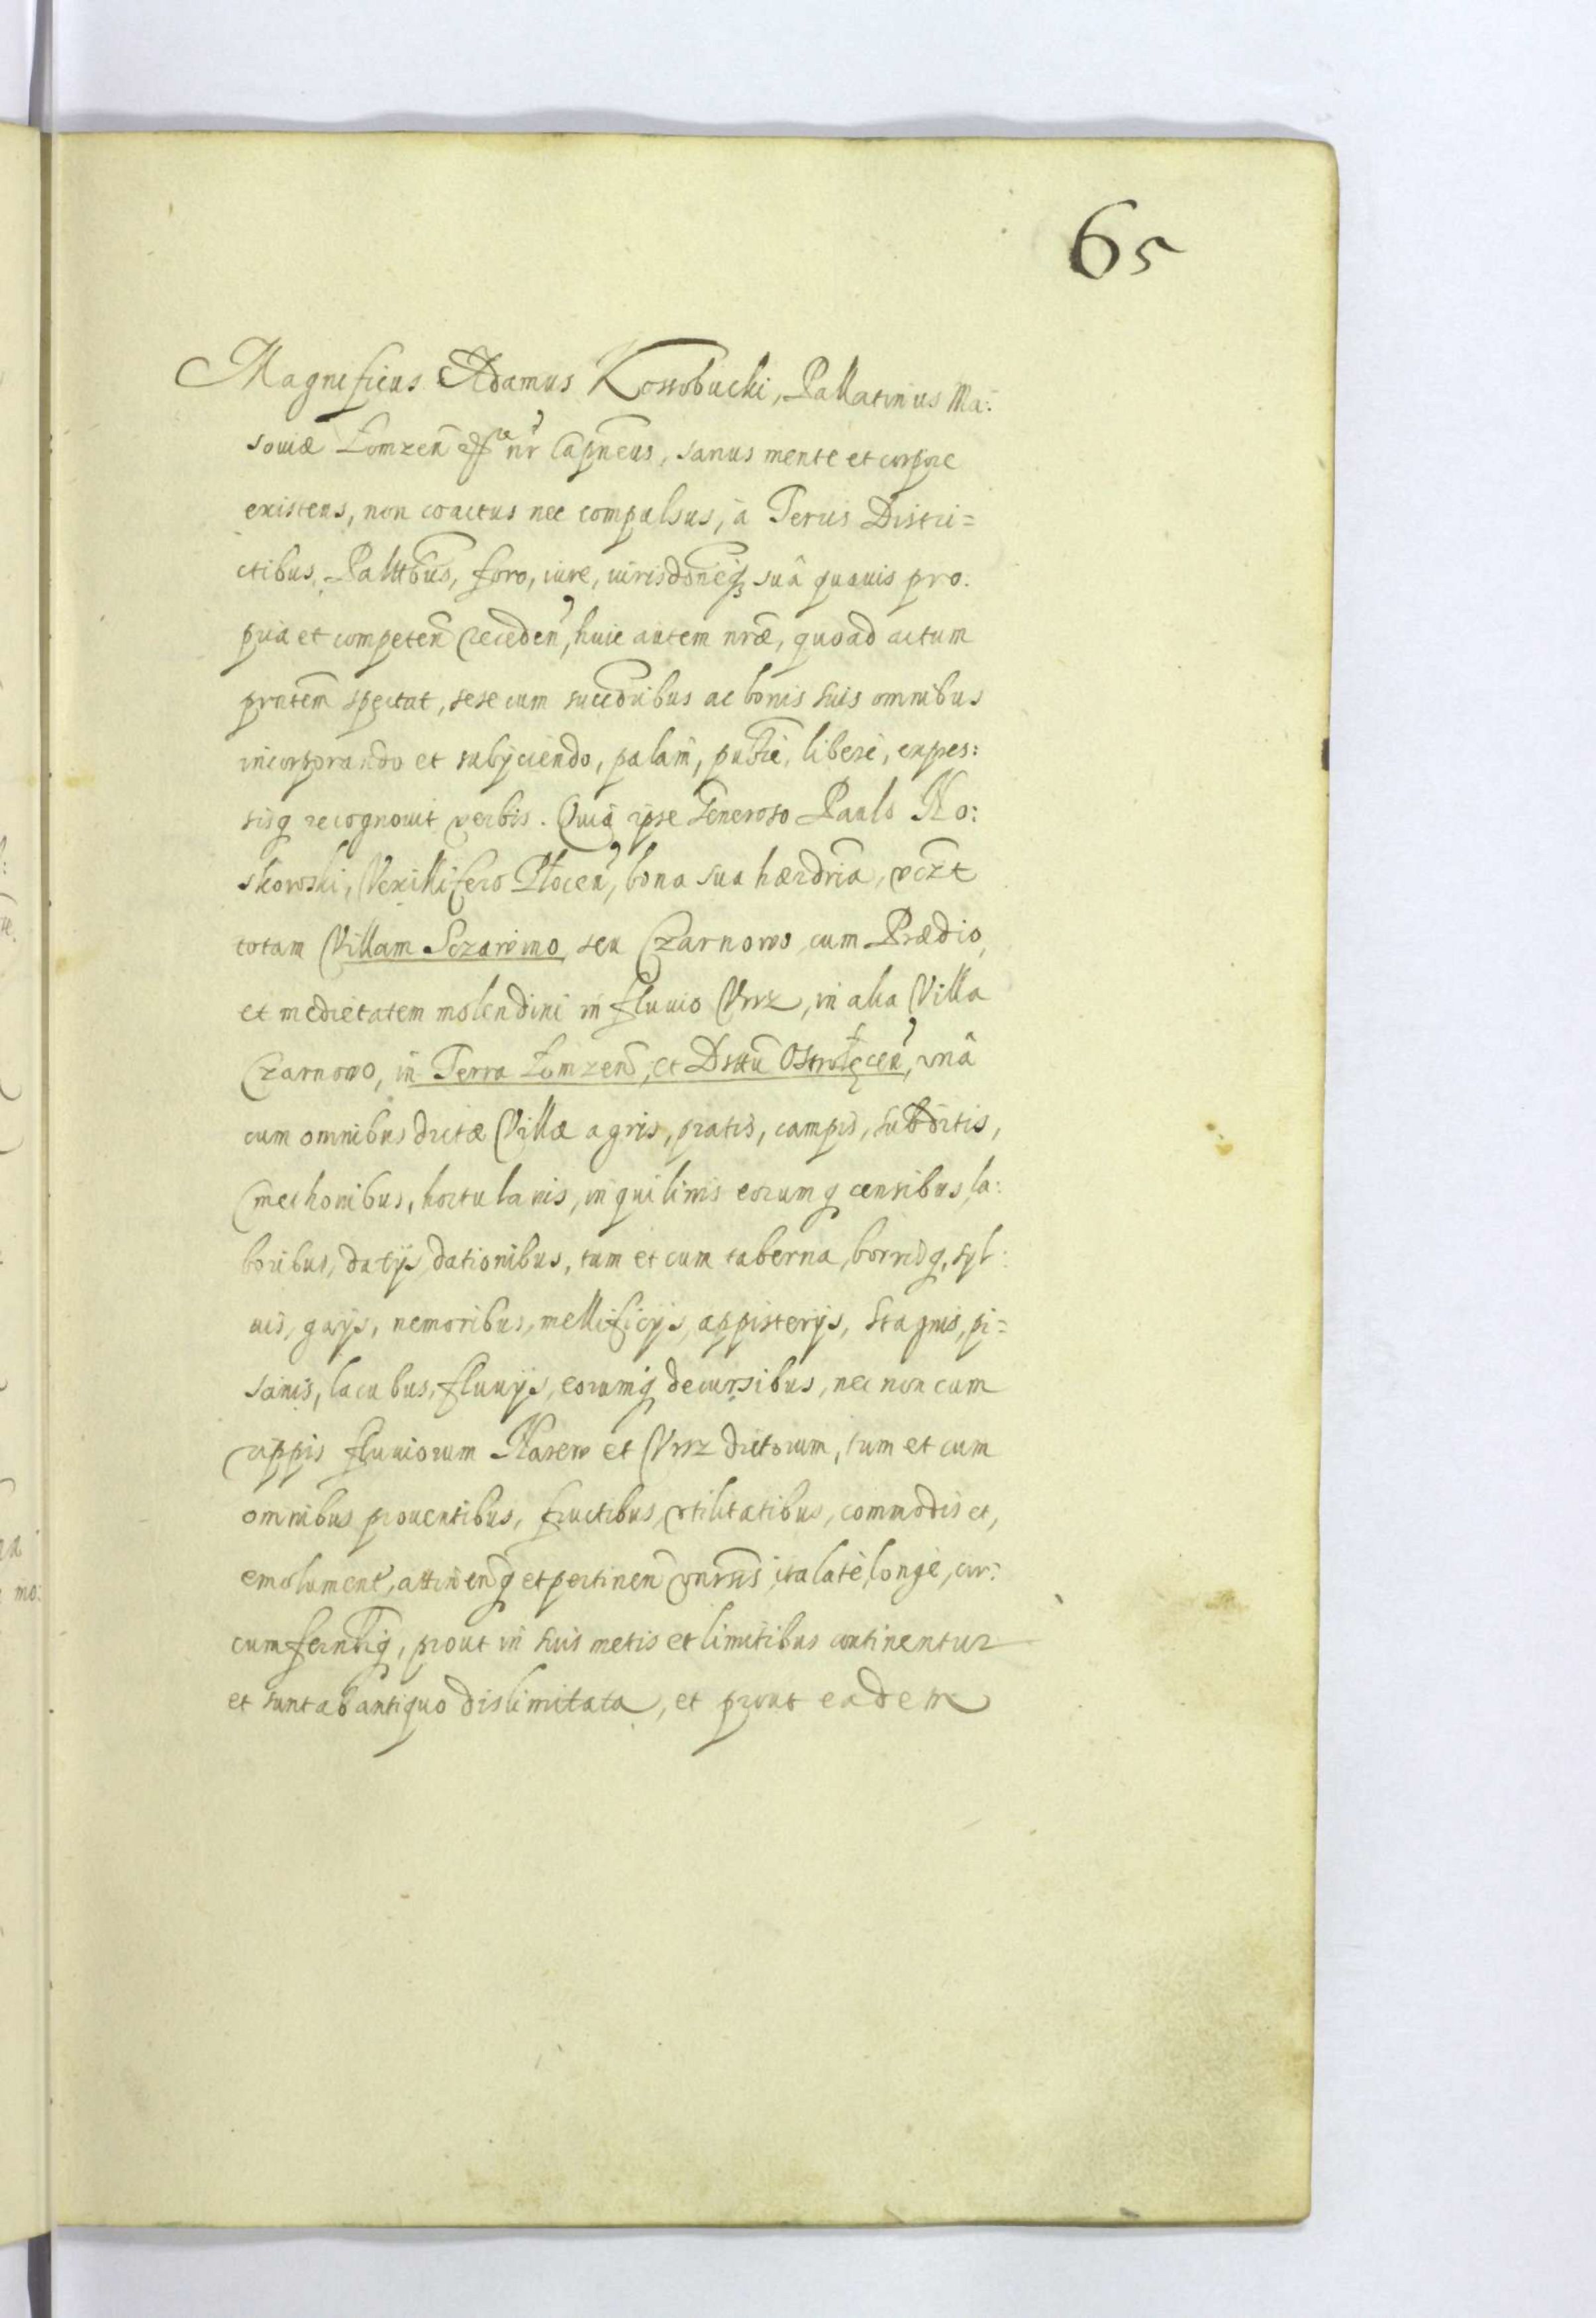 65
Magnificus Adamus Kossobucki, Pallatinus Ma:
souiæ Łomzeñ nr̃ Capñeus, sanus mente et corpore
existens, non coactus nec compulsus, à Terris Distri=
ctibus, Palttbus, foro, iure, iurisdõneq̃ suâ quauis pro:
pria et competeñ recedeñ, huic autem nræ̃, quoad actum
pñtem spectat, sese cum succõribus ac bonis suis omnibus
incorporando et subijciendo, palam, publĩe, liberè, expres:
sisq recognouit verbis. Quia ipse Generoso Paulo No:
skowski, Vexillifero Płoceñ, bona sua hærdria, vczt
totam Villam Sczawino seu Czarnowo cum Prædio,
et medietatem molendini in fluuio Vrz, in alia Villa
Czarnowo, in Terra Łomzeñ, et Dsttũ Ostrołęceñ, vnâ
cum omnibus dictæ Villæ agris, pratis, campis, subditis,
Cmethonibus, hortulanis, inquilinis eorumq censibus, la:
boribus, datijs, dationibus, tum et cum taberna, borrisq, syl:
uis, gaijs, nemoribus, mellificijs, appisterijs, stagnis, pi=
scinis, lacubus, fluuijs, eorumq decursibus, nec non cum
rippis fluuiorum Narew et Vrz dictorum, tum et cum
omnibus prouentibus, fructibus, vtilitatibus, commodis et,
emolument, attineñq et pertineñ vnirsis, ita latè, longè, cir:
cumferntiq, prout in suis metis et limitibus continentur
et sunt ab antiquo dislimitata, et prout eadem